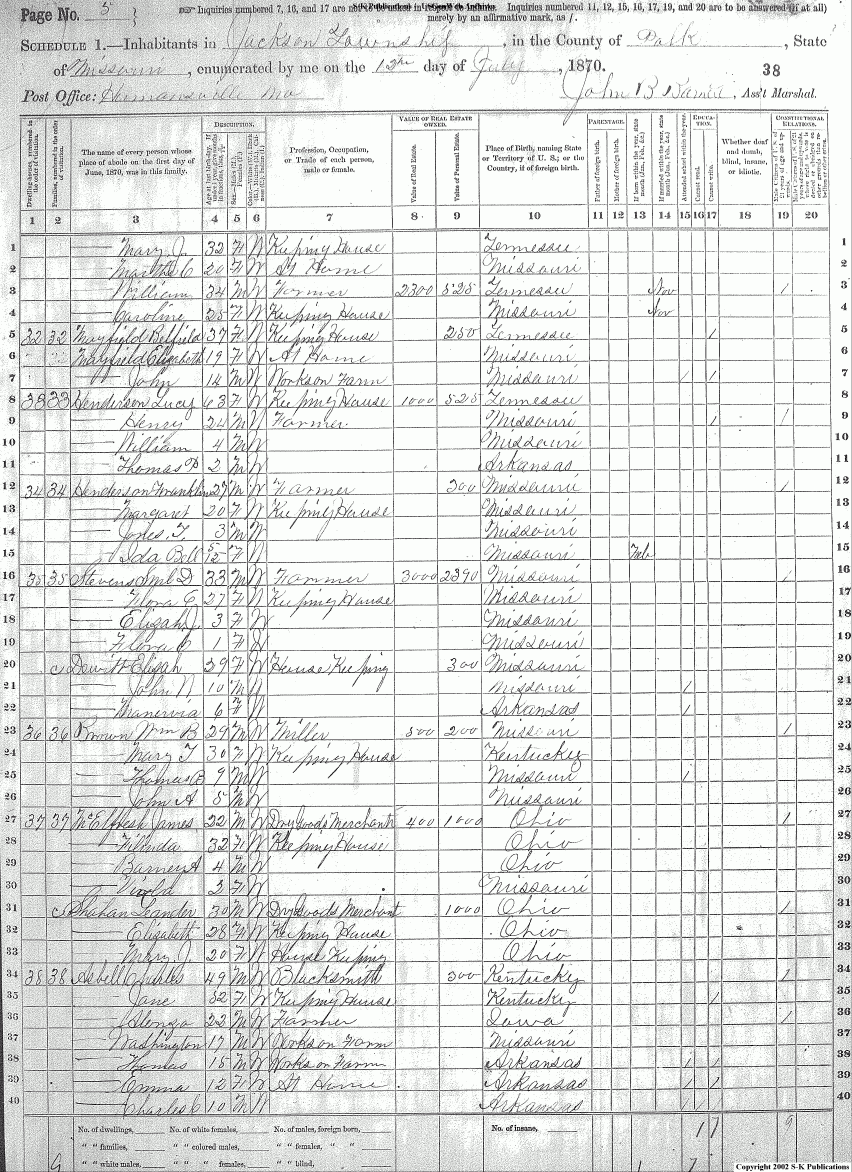 Page No. 5 }
Inquiries numbered 7, 16, and 17 are not to be asked in respect to infants. Inquiries numbered 11, 12, 15, 16, 17, 19, and 20 are to be answered (if at all)
merely by an affirmative mark, as /.
SCHEDULE 1.—Inhabitants in Jackson Township, in the County of Polk, State
of Missouri, enumerated by me on the 12th day of July, 1870. 38
Post Office: Humansville Mo John B , Ass't Marshal.
The name of every person whose place of abode on the first day of June, 1870, was in this family.
DESCRIPTION.
Profession, Occupation, or Trade of each person, male or female.
VALUE OF REAL ESTATE OWNED.
Value of Real Estate.
Value of Personal Estate.
Place of Birth, naming State or Territory of U. S.; or the Country, if of foreign birth.
PARENTAGE.
Father of foreign birth.
Mother of foreign birth.
Attended school within the year.
EDUCATION.
Cannot read.
Cannot write.
Whether deaf and dumb, blind, insane, or idiotic.
CONSTITUTIONAL RELATIONS.
1 2 3 4 5 6 7 8 9 10 11 12 13 14 15 16 17 18 19 20
1 — Mary J. 32 F W Keeping House Tennessee 1
2 — Martha C 20 F W At Home Missouri 2
3 — William 34 M W Farmer 2300 525 Tennessee Nov / 3
4 — Caroline 25 F W Keeping House Missouri Nov 4
5 32 32 Mayfield 37 F W Keeping House 250 Tennessee / 5
6 Mayfield Elizabeth 19 F W At Home Missouri 6
7 — John 14 M W Works on Farm Missouri / / 7
8 33 33 Henderson Lucy 63 F W Keeping House 1000 525 Tennessee 8
9 — Henry 24 M W Farmer Missouri / / 9
10 — William 4 M W Missouri 10
11 — Thomas P 2 M W Arkansas 11
12 34 34 Henderson Franklin 27 M W Farmer 300 Missouri / 12
13 — Margaret 20 F W Keeping House Missouri 13
14 — Jones T. 3 M W Missouri 14
15 — Ida Bell 5/12 F W Missouri Feb 15
16 35 35 Stevens D 33 M W Farmer 3000 2390 Missouri / 16
17 — Flora C 27 F W Keeping House Missouri 17
18 — Elizah J. 3 F W Missouri 18
19 — Flora C 1 F W Missouri 19
20 Dewitt Elizah 29 F W House Keeping 300 Missouri 20
21 — John N 10 M W Missouri / 21
22 — Manervia 6 F W Arkansas / 22
23 36 36 Brown Wm B 29 M W Miller 500 200 Missouri / 23
24 — Mary T 30 F W Keeping House Kentucky 24
25 — Thomas B 9 M W Missouri / 25
26 — John A 5 M W Missouri 26
27 37 37 McElfresh James 22 M W Dry Goods Merchant 400 1000 Ohio / 27
28 — 32 F W Keeping House Ohio 28
29 — Barney A 4 M W Ohio 29
30 — Viola 3 F W Missouri 30
31 Shahan Leander 30 M W Dry Goods Merchant 1000 Ohio / 31
32 — Elizabeth 28 F W Keeping House Ohio 32
33 — Mary J. 20 F W House Keeping Ohio 33
34 38 38 Asbell Charles 49 M W Blacksmith 300 Kentucky / 34
35 — Jane 52 F W Keeping House Kentucky / 35
36 — Alonzo 22 M W Farmer Iowa / 36
37 — Washington 17 M W Works on Farm Missouri 37
38 — Thomas 15 M W Works on Farm Arkansas / / 38
39 — Emma 12 F W At Home Arkansas / / 39
40 — Charles C 10 M W Arkansas / / 40
No. of dwellings, No. of white females, No. of males, foreign born, No. of insane,
" " families, " " colored males, " " females, "
" " white males, " " " females, " " blind,
Copyright 2002 S-K Publications